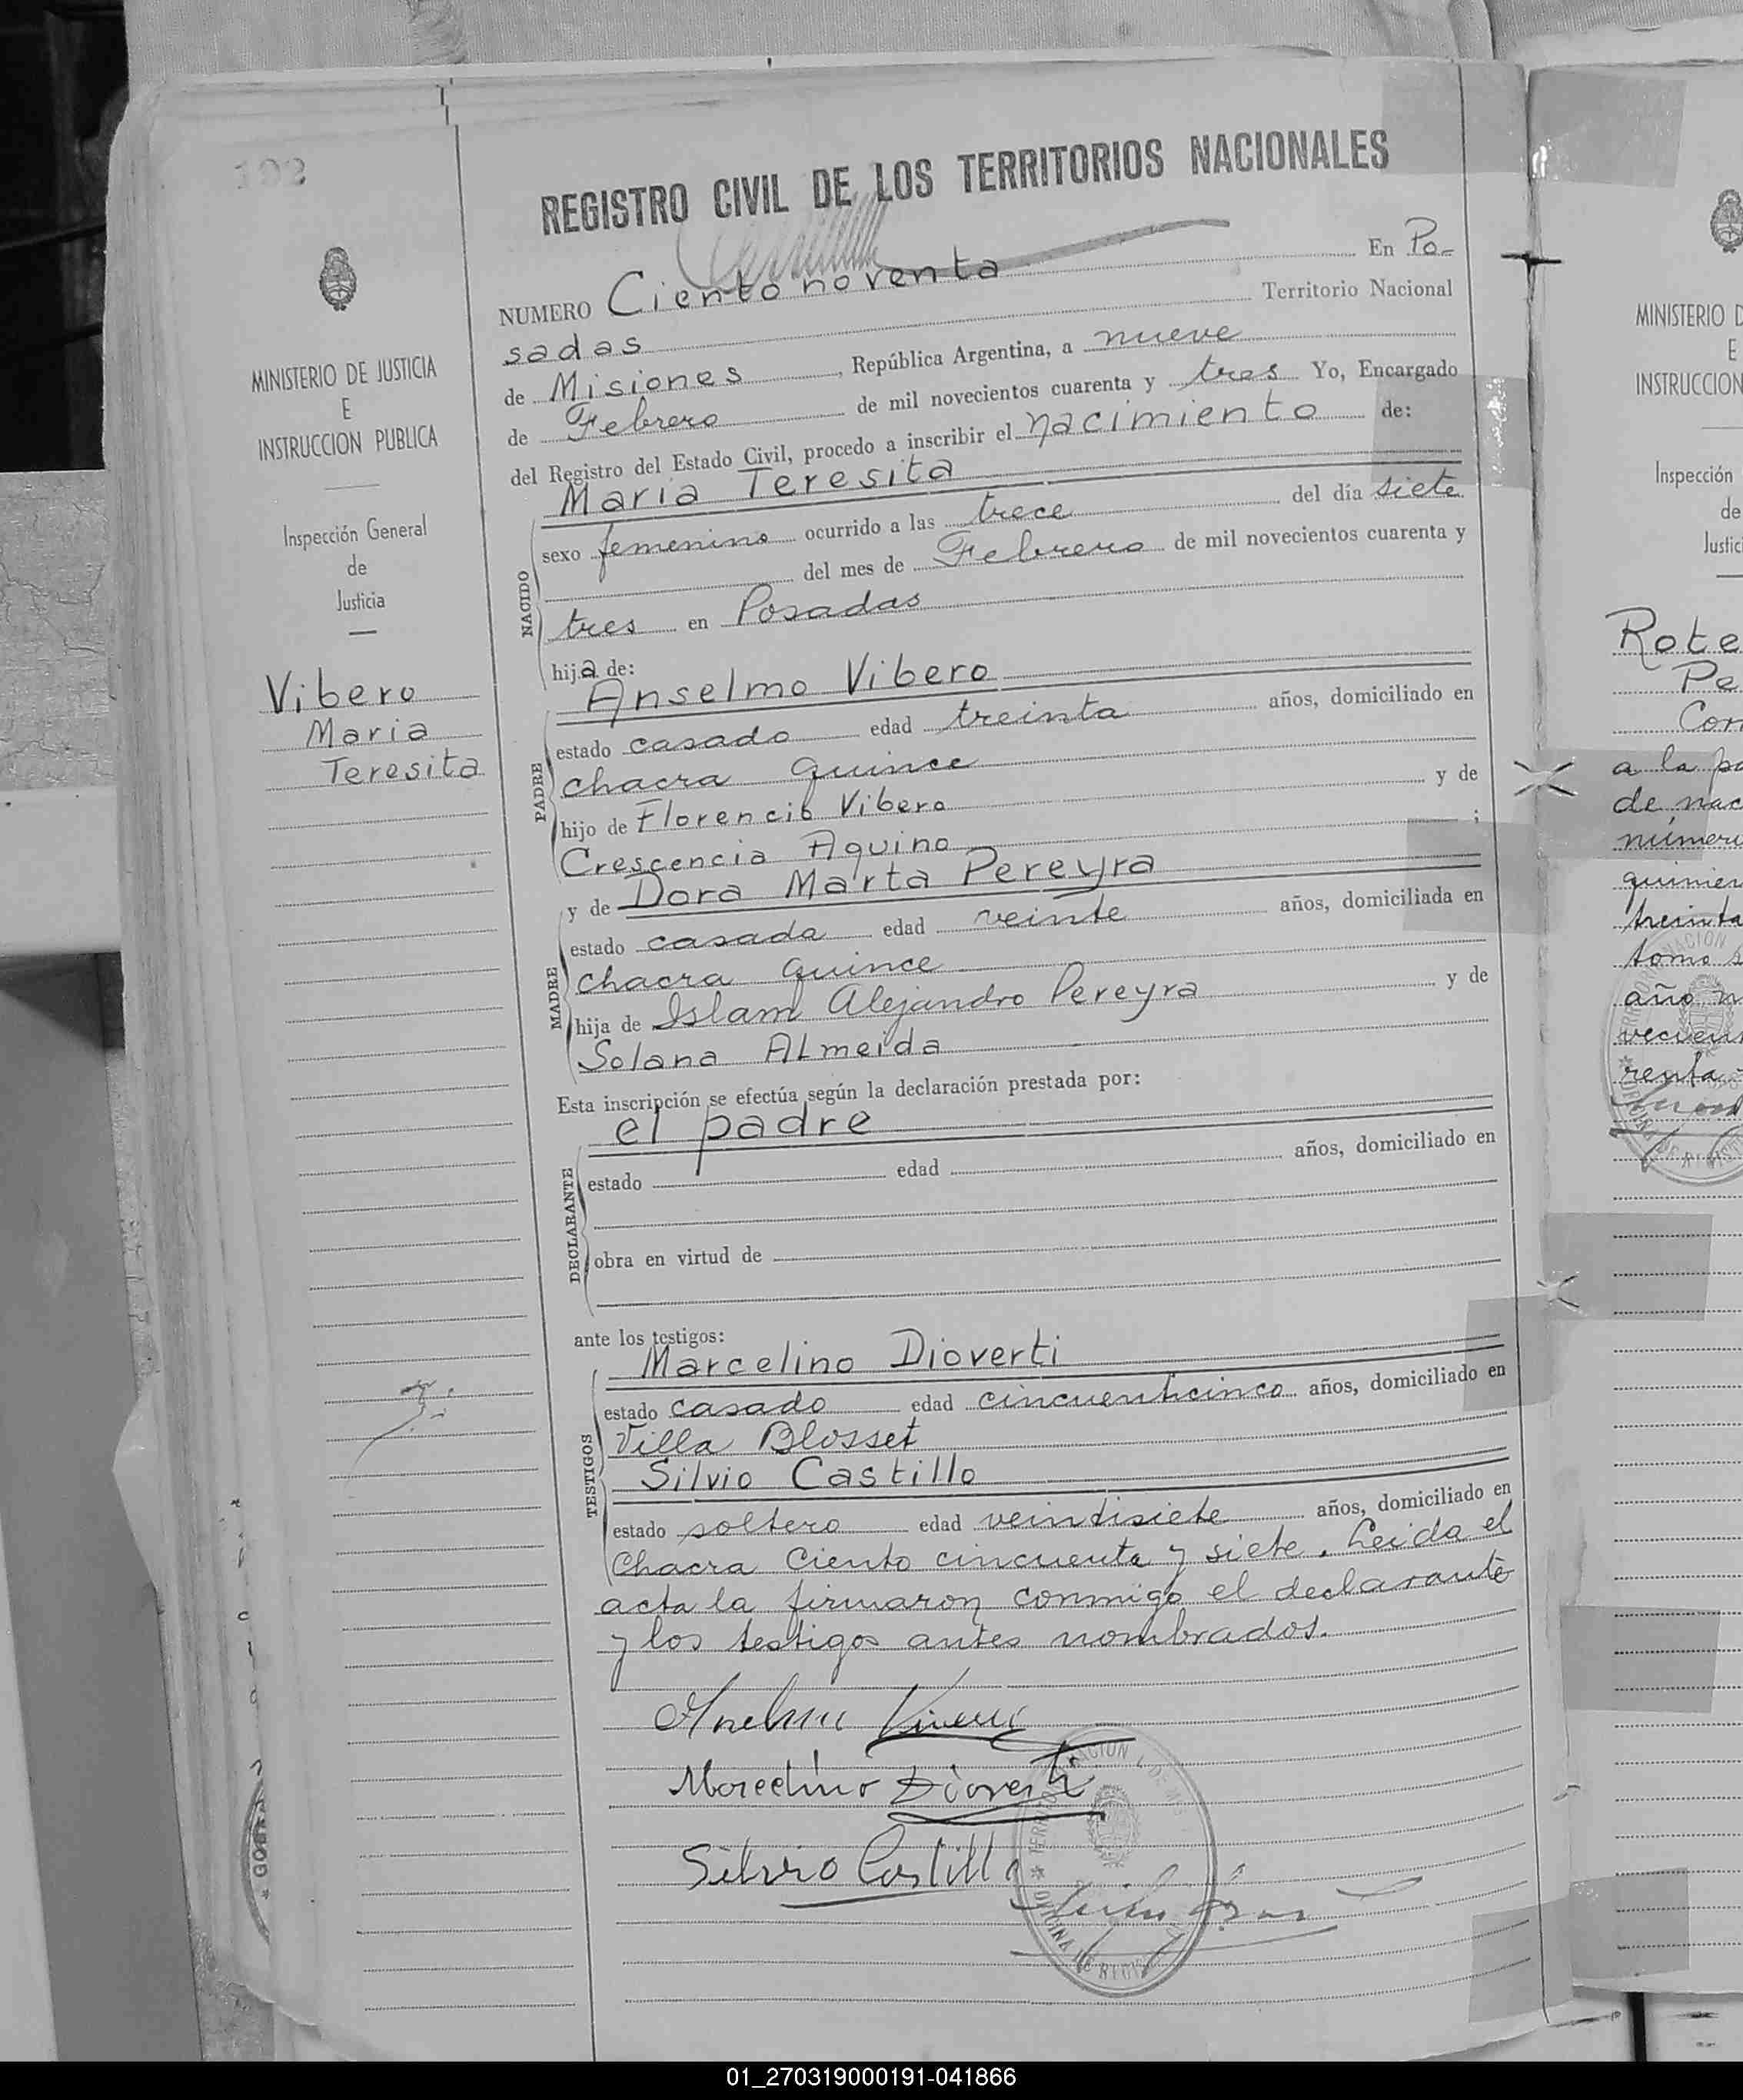 102
REGISTRO CIVIL DE LOS TERRITORIOS NACIONALES
MINISTERIO DE JUSTICIA
E
INSTRUCCION PUBLICA
Inspección General
de
Justicia
Vibero
Maria
Teresita
NUMERO Ciento noventa En Po-
sadas Territorio Nacional
de Misiones, República Argentina, a nueve
de Febrero de mil novecientos cuarenta y tres Yo, Encargado
del Registro del Estado Civil, procedo a inscribir el nacimiento de:
Maria Teresita
NACIDO
sexo femenino ocurrido a las trece del día siete
del mes de Febrero de mil novecientos cuarenta y
tres en Posadas
hija de:
Anselmo Vibero
PADRE
estado casado edad treinta años, domiciliado en
chacra quince
hijo de Florencio Vibero y de
Crescencia Aquino ;
y de Dora Marta Pereyra
MADRE
estado casada edad veinte años, domiciliada en
chacra quince
hija de Islam Alejandro Pereyra y de
Solana Almeida
Esta inscripción se efectúa según la declaración prestada por:
el padre
DECLARANTE
estado edad años, domiciliado en
obra en virtud de
ante los testigos:
Marcelino Dioverti
TESTIGOS
estado casado edad cincuenticinco años, domiciliado en
Villa Blosset
Silvio Castillo
estado soltero edad veintisiete años, domiciliado en
Chacra Ciento cincuenta y siete. Leida el
acta la firmaron conmigo el declarante
y los testigos antes nombrados.
Marcelino Dioverti
Silvio Castillo
MINISTERIO D
E
INSTRUCCION
Inspección
de
Justic
Rote
Pe
Cor
a la pa
de nac
número
quinien
treinta
tomo
año
vecien
renta
01_270319000191-041866